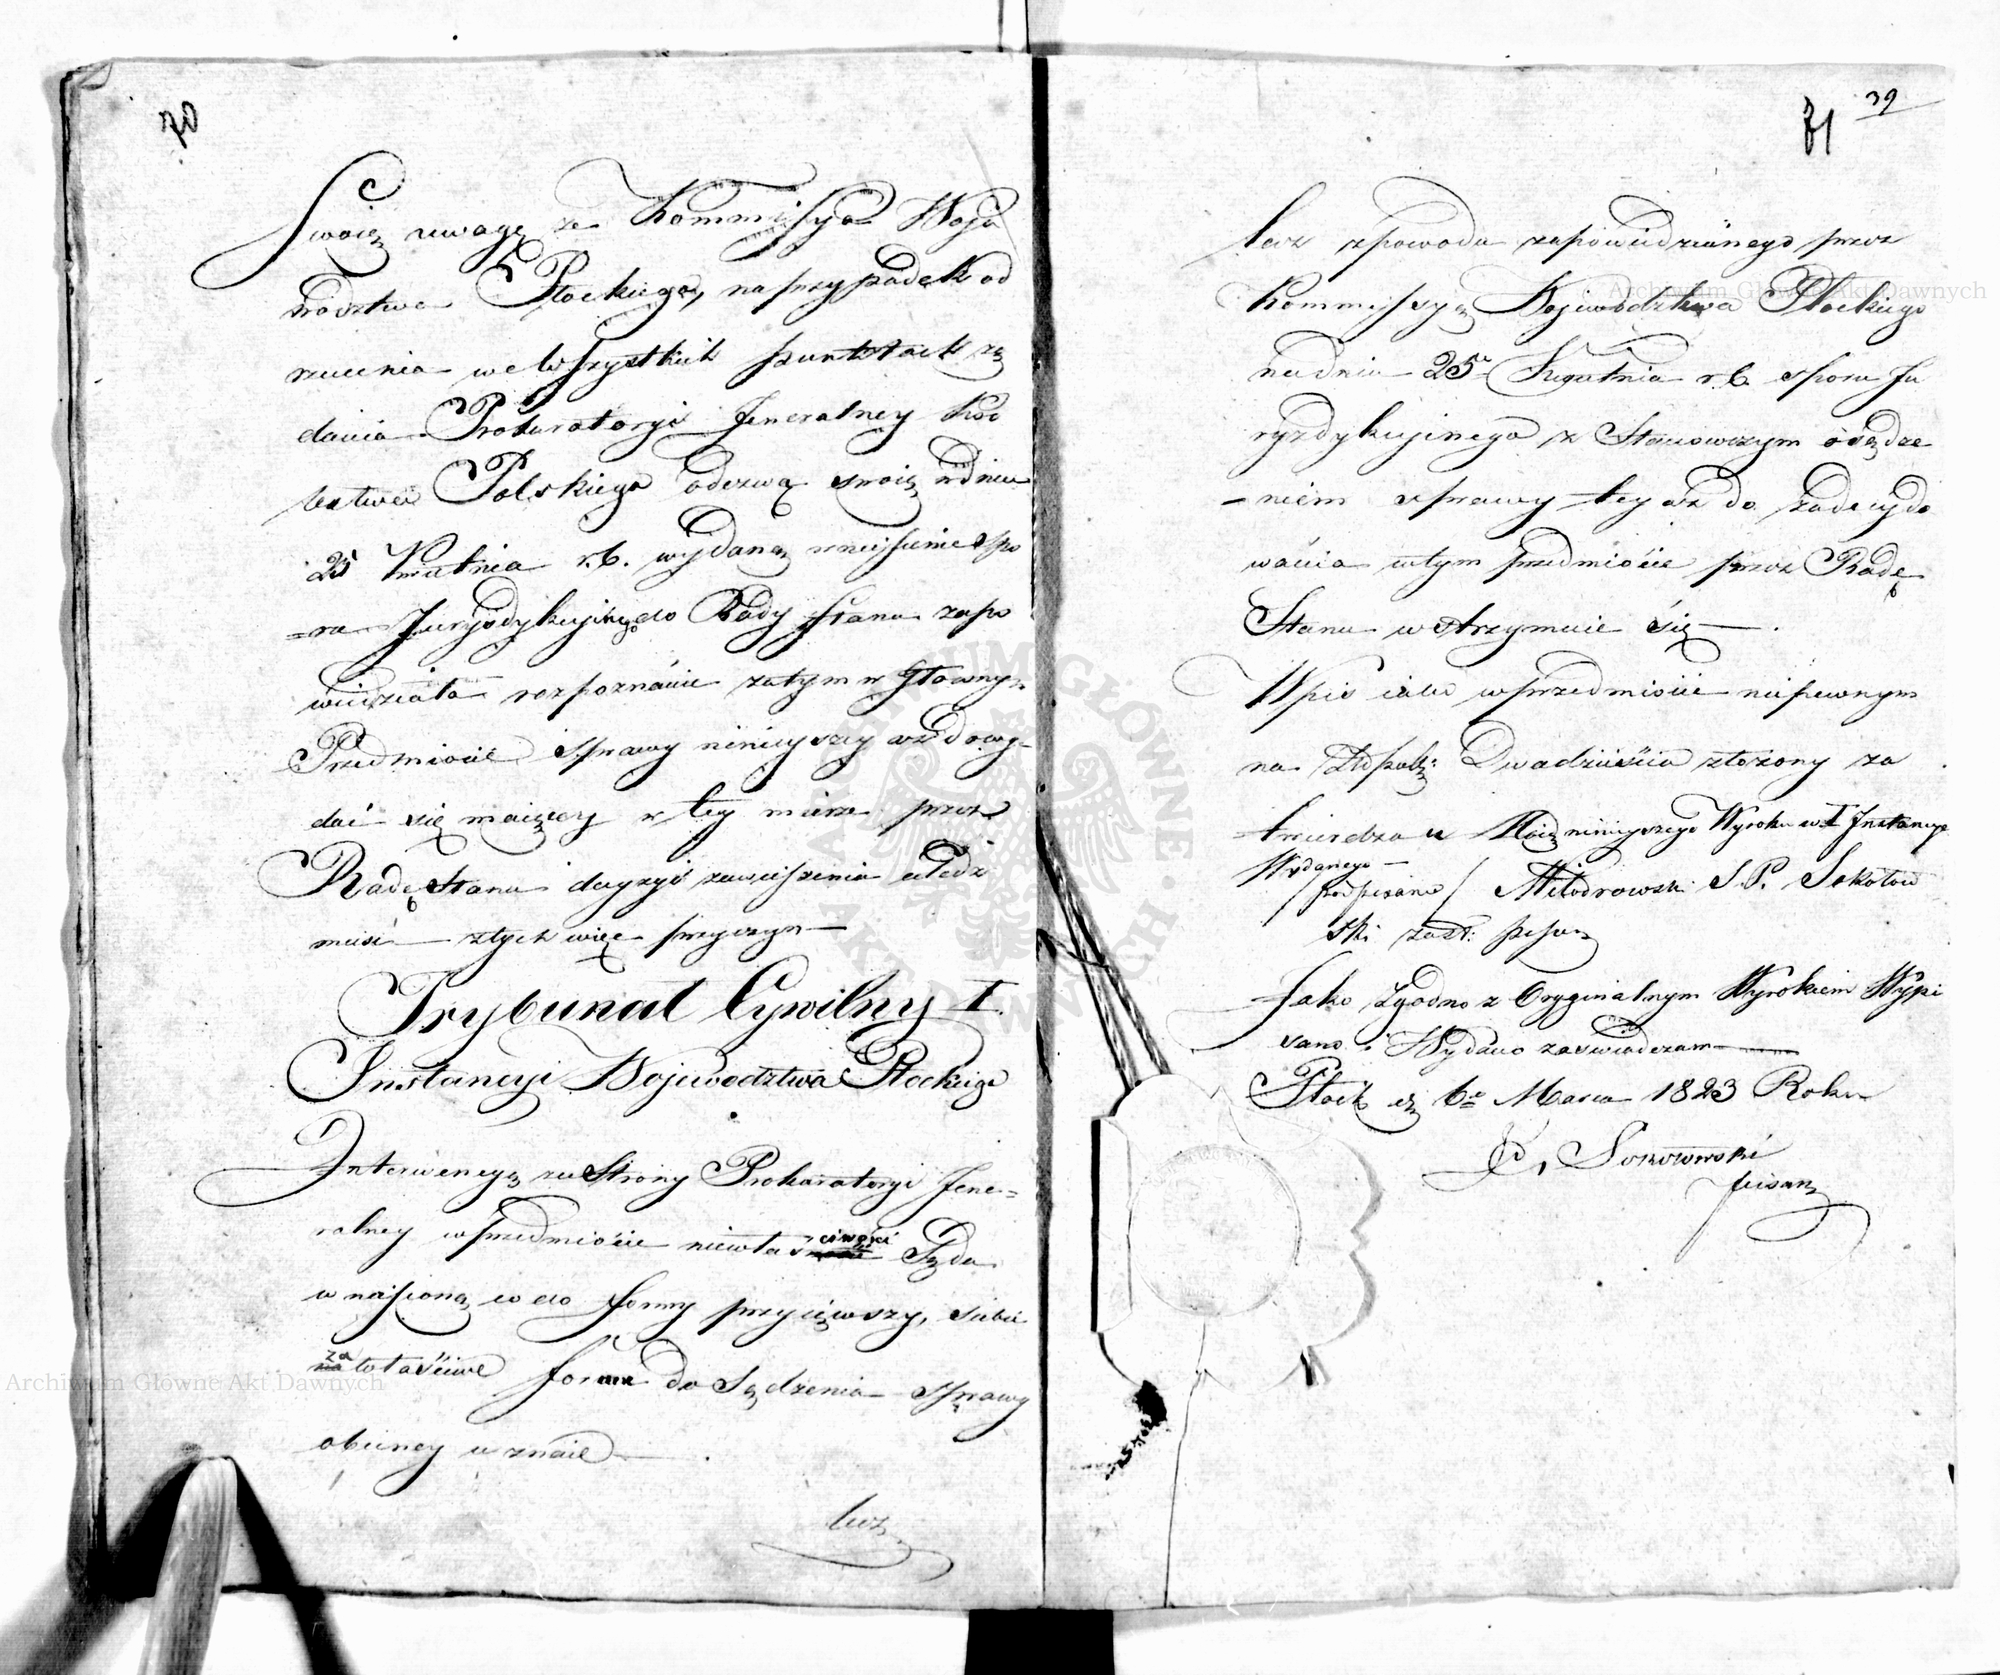 70
Swoię uwagę że Kommissya Woje
wodztwa Płockiego, na przypadek od
rzucenia we wszystkich punktach żą
dania Prokuratoryi Jeneralney Kró
lestwa Polskiego odezwą swoią z dnia
25 Kwietnia r.b. wydaną wniesienie spo
=ru Juryzdykcyinego do Rady Stanu zapo
wiedziała rozpoznanie zatym w Głównym
Przedmiocie sprawy ninieyszey az do wy-
dać się maiącey w tey mierze przez
Radę Stanu decyzyi zawieszenia uledz
musi — z tych więc przyczyn —
Trybunał Cywilny I.
Instancyi Województwa Płockiego
Interwencyą ze Strony Prokuratoryi Jene-
ralney w przedmiocie niewłaściwości Sądu
wniesioną co do formy przyiąwszy, siebie
za właściwe forum do Sądzenia sprawy
obecney uznaie — .
lecz
71 39
lecz z powodu zapowiedzianego przez
Kommissyą Województwa Płockiego
na dniu 25 Kwietnia r.b. sporu Ju
ryzdykcyinego z Stanowczym osądze
-niem sprawy tey az do zadecydo
wania w tym przedmiocie przez Radę
Stanu wstrzymuie się — .
Wpis iako w przedmiocie niepewnym
na Złt pols: Dwadzieścia złożony za
twierdza Mocą ninieyszego Wyroku w I Instancyi
Wydanego —
/podpisano/ Miłodrowski S.P. Sokołow
ski zast: pisarz
Jako Zgodno z Oryginalnym Wyrokiem Wypi
sano i Wydano zaświadczam
Płock d. 6 Marca 1823 Roku
Sokołowski
pisarz
Archiwum Główne Akt Dawnych
Archiwum Główne Akt Dawnych
ARCHIWUM GŁÓWNE AKT DAWNYCH